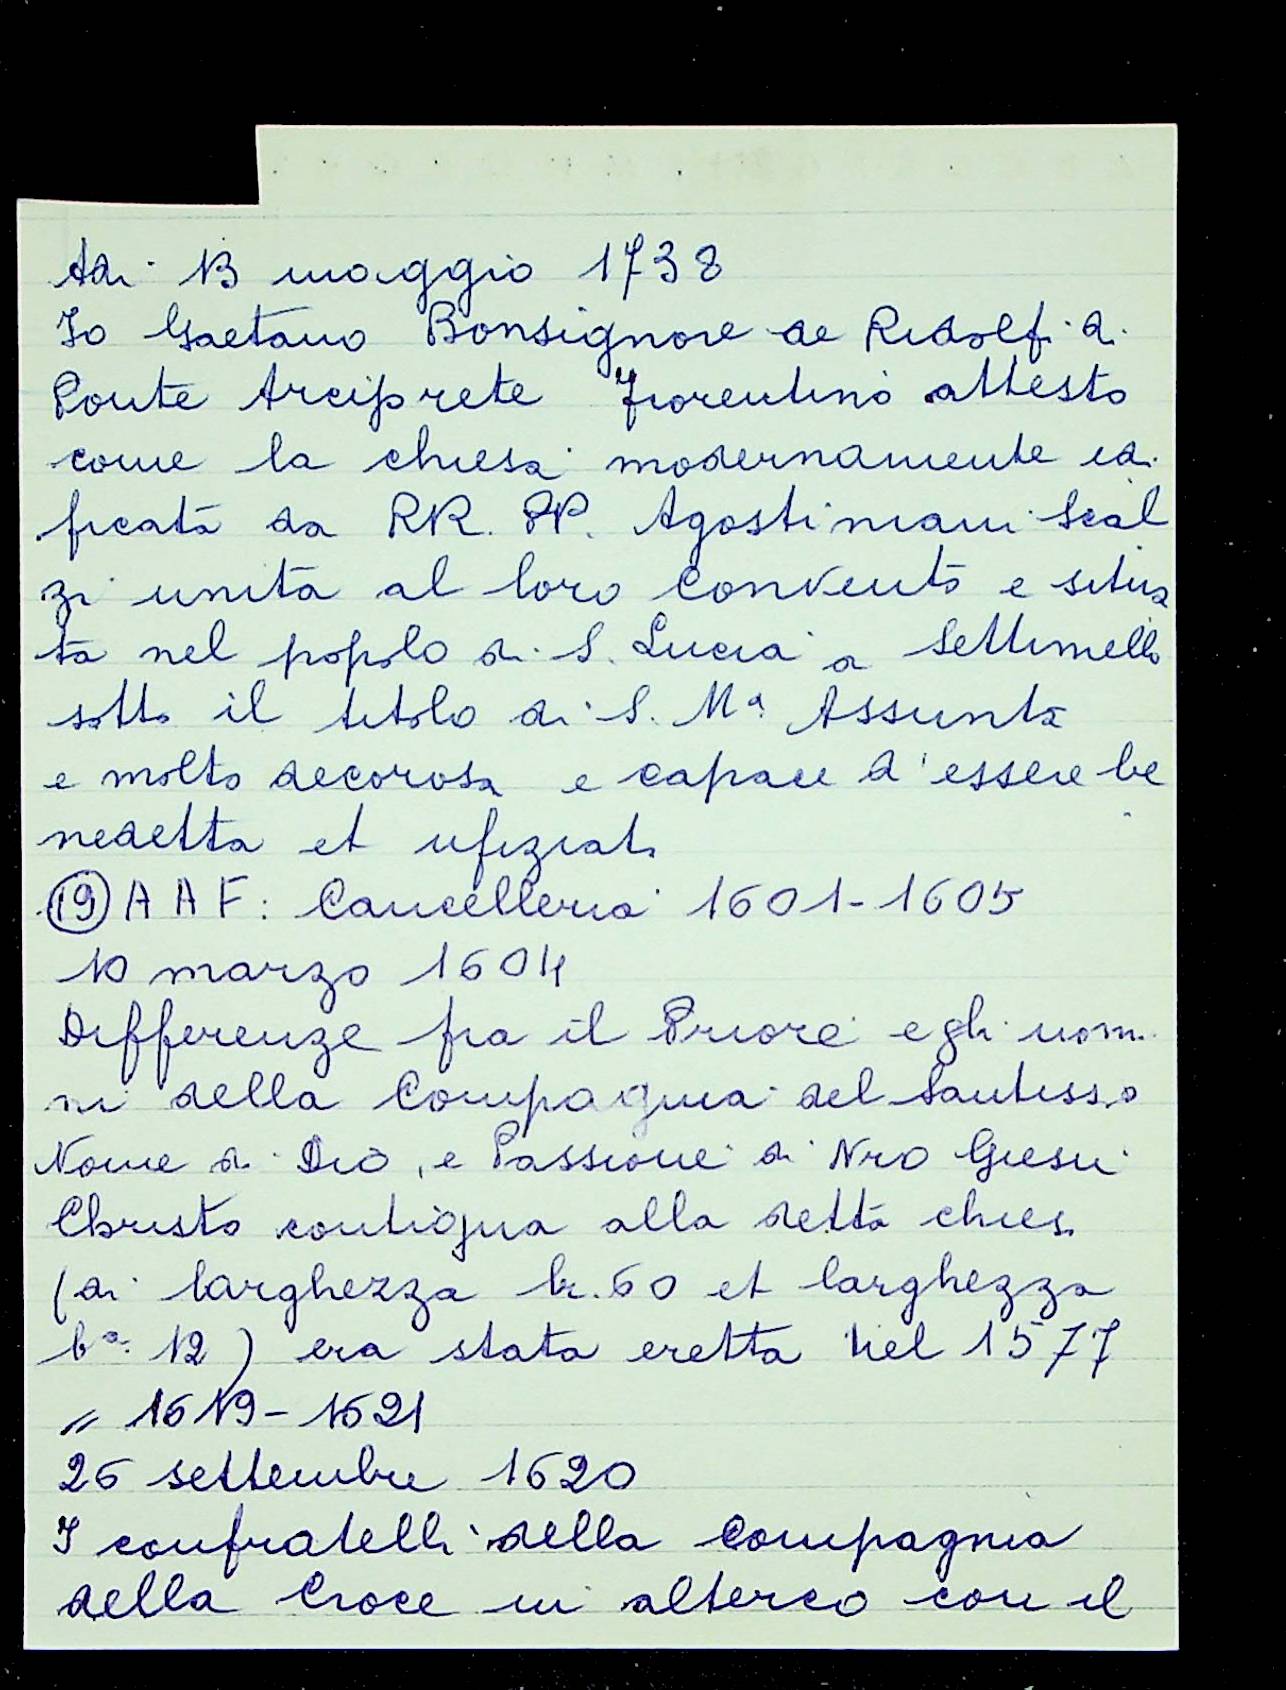 Adi 13 maggio 1738
Io Gaetano Bonsignore de Ridolfi di
Ponte Arciprete Fiorentino attesto
come la chiesa modernamente edi
ficata da RR. PP. Agostiniani Scal
zi unita al loro convento e situa
ta nel popolo di S. Lucia a Settimello
sotto il titolo di S. Mª Assunta
e molto decorosa e capace d'essere be
nedetta et ufiziata
(19) A A F: Cancelleria 1601-1605
10 marzo 1604
Differenze fra il Priore e gli uomi
ni della Compagnia del Santisso
Nome di Dio, e Passione di Nro Giesu
Christo contigua alla detta chiesa
(di larghezza br. 60 et larghezza
bª 12) era stata eretta nel 1577
" 1619-1621
26 settembre 1620
I confratelli della Compagnia
della Croce in alterco con il